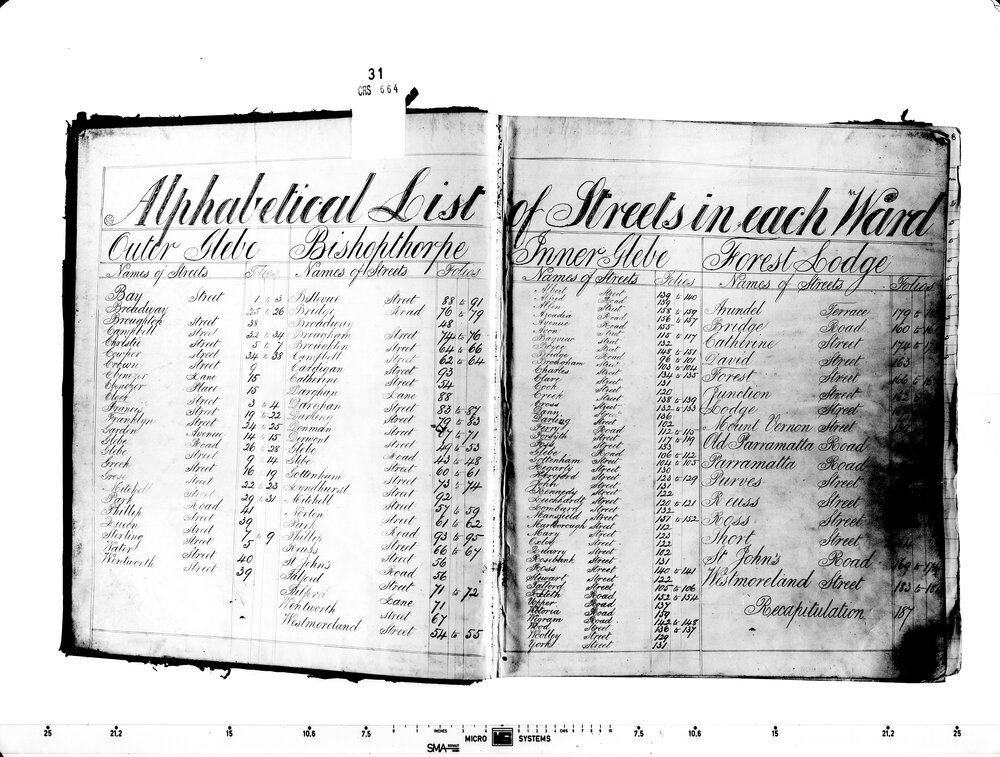 31
CRS 664
Alphabetical List of Streets in each Ward
Outer Glebe
Names of Streets Folios
Bay Street 1 to 3
Broadway 25 to 26
Broughton Street 38
Campbell Street 32 to 34
Christie Street 5 to 7
Cowper Street 34 to 38
Crown Street 9
Ebenezer Lane 15
Ebenezer Place 15
Elger Street 3 to 4
Francis Street 19 to 22
Franklyn Street 24 to 25
Garden Avenue 14 to 15
Glebe Road 26 to 28
Glebe Street 9 to 14
Greek Street 16 to 19
Grose Street 22 to 23
Mitchell Street 29 to 31
Park Road 41
Phillip Street 39
Queen Street 7 to 9
Stirling Street 5
Water Street 40
Wentworth Street 39
Bishopthorpe
Names of Streets Folios
Bellevue Street 88 to 91
Bridge Road 76 to 79
Broadway 48
Brougham Street 74 to 76
Broughton Street 64 to 66
Campbell Street 62 to 64
Cardigan Street 93
Catherine Street 54
Darghan Lane 88
Darghan Street 83 to 87
Darling Street 79 to 83
Denman Street 67 to 71
Derwent Street 49 to 53
Glebe Road 43 to 48
Glebe Street 60 to 61
Gottenham Street 73 to 74
Lyndhurst Street 92
Mitchell Street 57 to 59
Norton Street 61 to 62
Park Road 93 to 95
Phillip Street 66 to 67
Reuss Street 56
St John's Road 56
Talford Street 71 to 72
Talford Lane 71
Wentworth Street 67
Westmoreland Street 54 to 55
Inner Glebe
Names of Streets Folios
Albert Street 139 to 140
Alfred Road 159
Street 158 to 159
Arcadia Road 156 to 157
Avenue Road 155
Avon Street 115 to 117
Street 132
Boyce Street 148 to 151
Bridge Road 96 to 101
Street 103 to 104
Charles Street 134 to 135
Clare Street 131
Cook Street 120
Creek Street 138 to 139
Cross Street 132 to 133
Dann Street 136
Darling Street 102
Ferry Road 112 to 115
Forsyth Street 117 to 119
Street 133
Glebe Road 106 to 112
Gottenham Street 104 to 105
Hegarty Street 130
Hereford Street 123 to 129
John Street 131
Kennedy Street 122
Leichhardt Street 120 to 121
Lombard Street 132
Mansfield Street 151 to 152
Marlborough Street 112
Mary Street 123
Oxley Street 122
Quarry Street 102
Rosebank Street 131
Ross Street 140 to 141
Stewart Street 122
Talford Street 105 to 106
Toxteth Road 152 to 154
Upper Road 137
Victoria Road 159
Wigram Road 142 to 148
Street 136 to 137
Woolley Street 129
York Street 131
Forest Lodge
Names of Streets Folios
Arundel Terrace 179 to
Bridge Road 160 to
Catherine Street 174 to
David Street 163
Forest Street 166 to
Junction Street 162
Lodge Street
Mount Vernon Street
Old Parramatta Road
Parramatta Road
Purves Street
Reuss Street
Ross Street
Short Street
St John's Road 169 to 174
Westmoreland Street 183 to
Recapitulation 187
25 21.2 15 10.6 7.5 INCHES CMS 7.5 10.6 15 21.2 25
SMA MICRO SYSTEMS